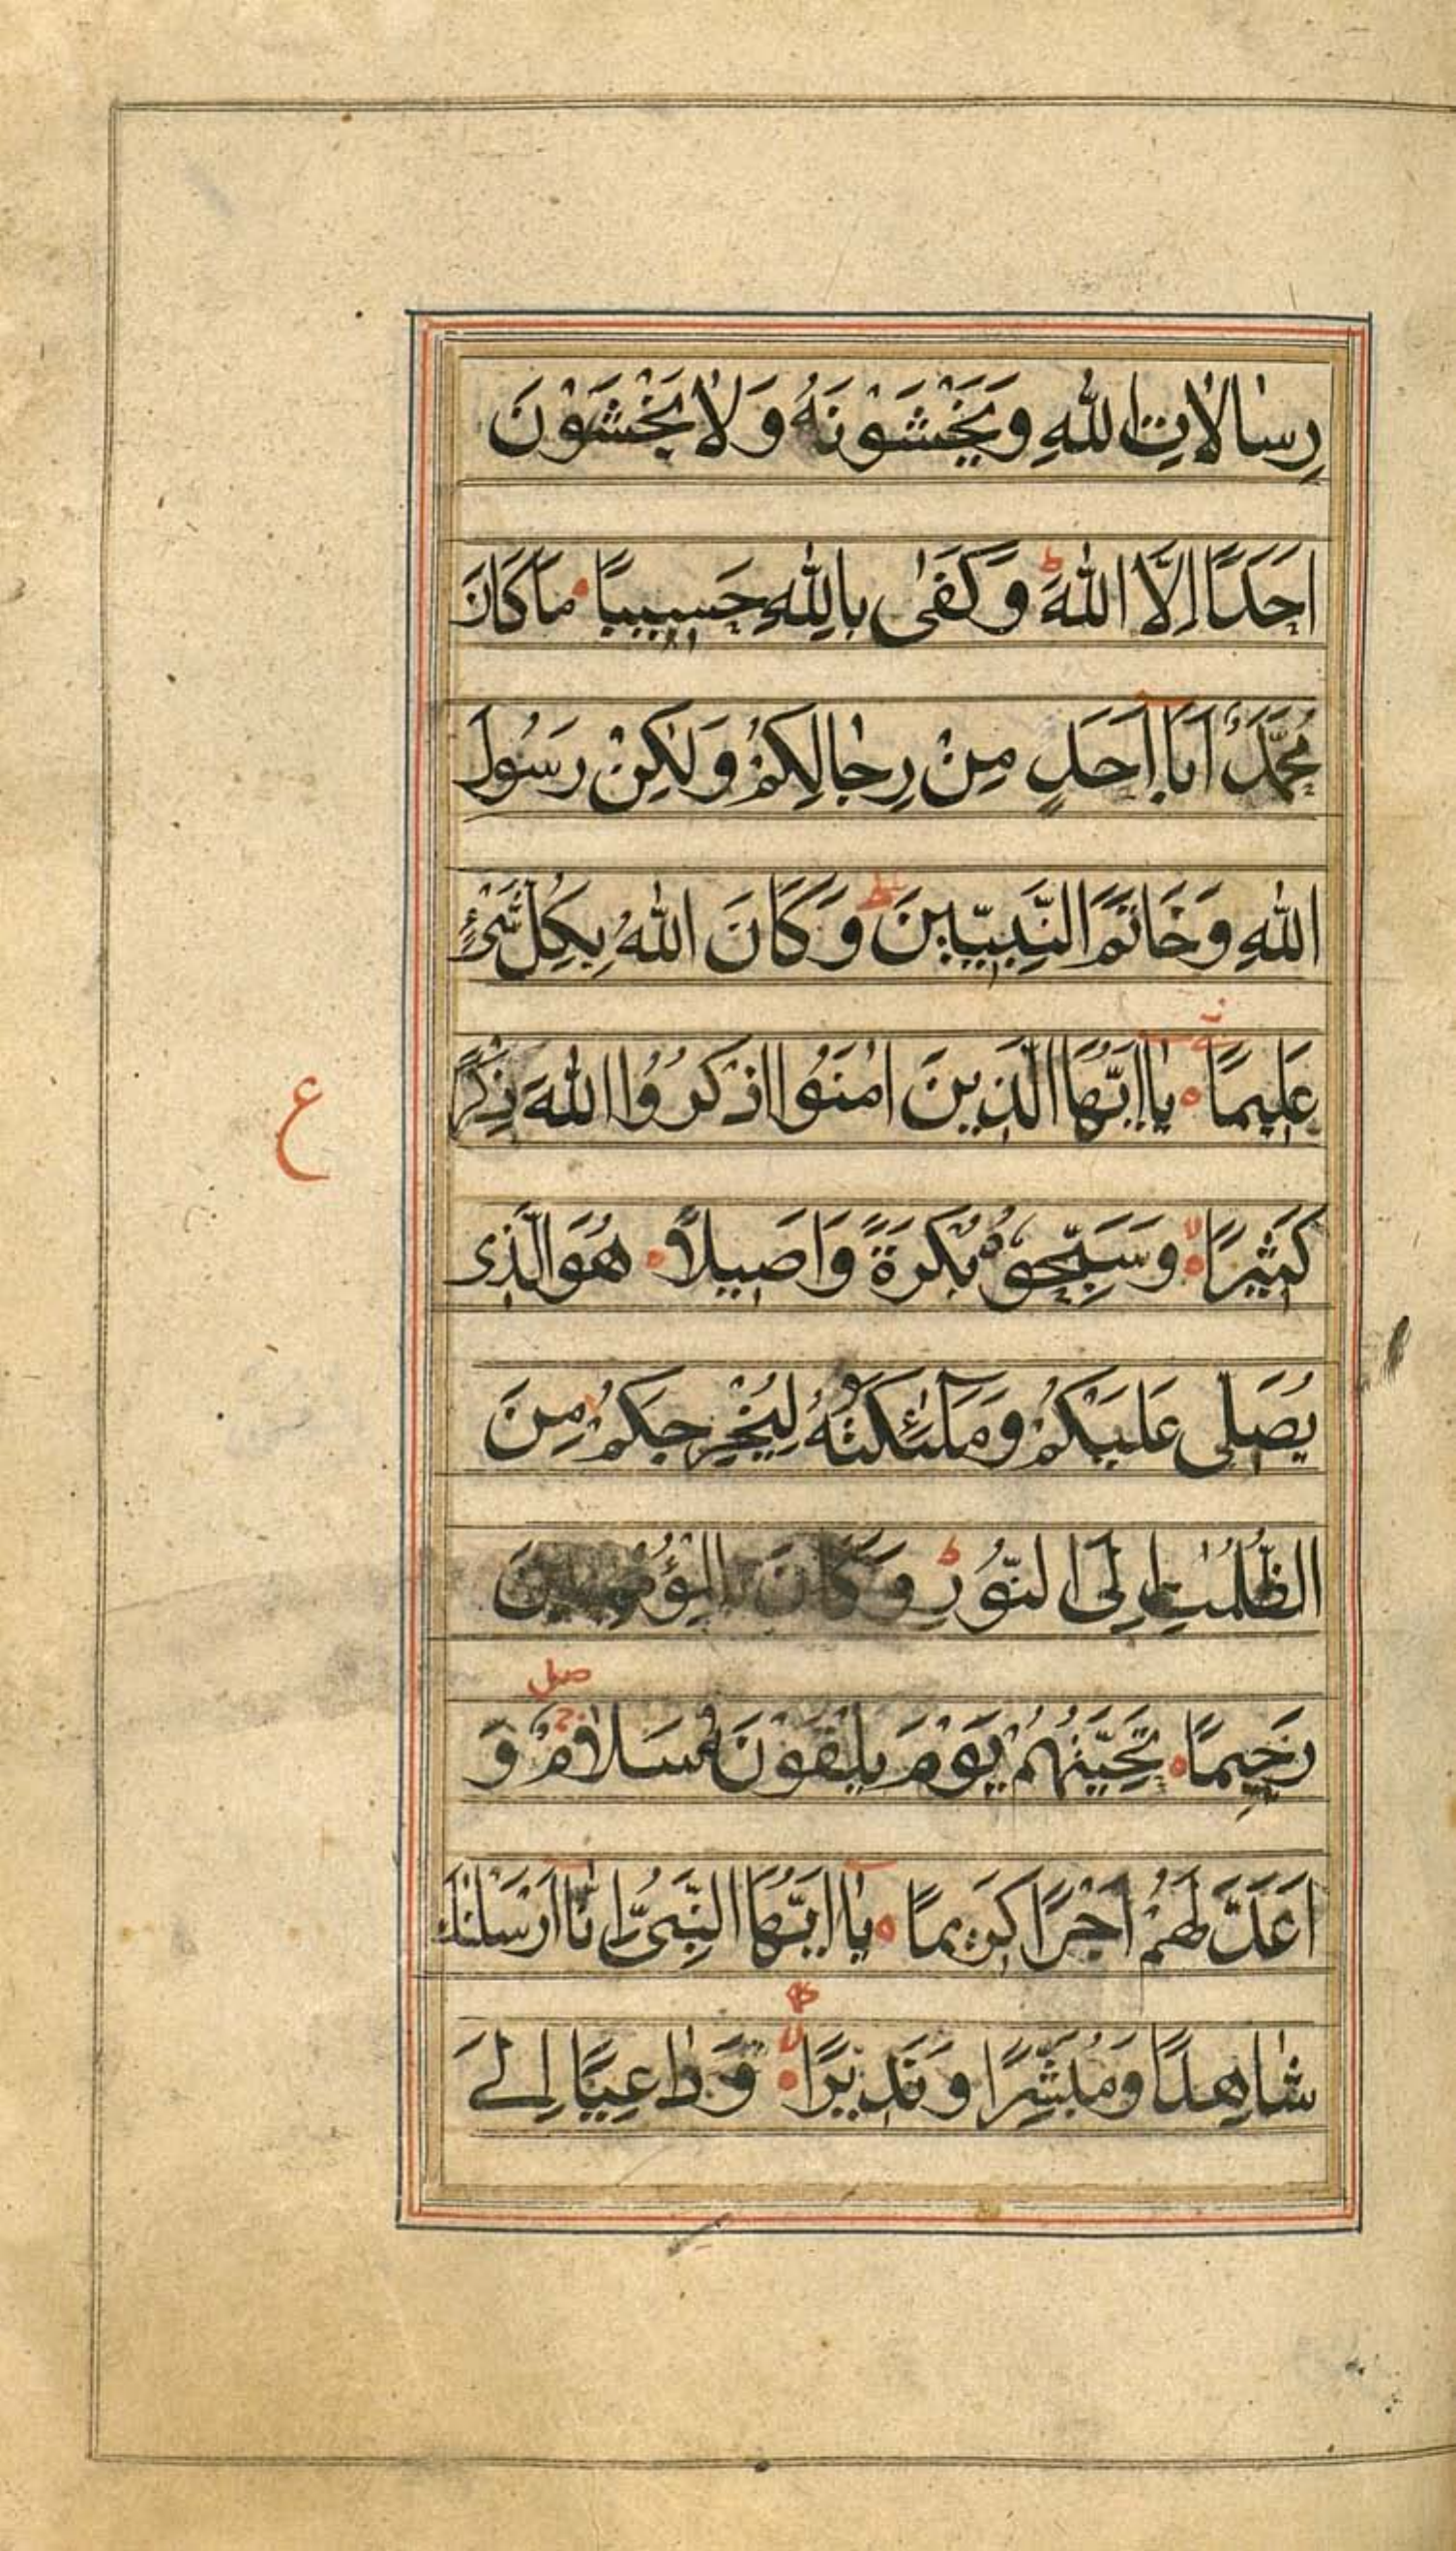 رِسٰالَاتِ اللّٰهِ وَيَخْشَوْنَهُ وَلَا يَخْشَوْنَ
اَحَدًا اِلَّا اللّٰهَ ط وَكَفٰى بِاللّٰهِ حَسِيبًا مَا كَانَ
مُحَمَّدٌ اَبَا اَحَدٍ مِنْ رِجٰالِكُمْ وَلٰكِنْ رَسُولَ
اللّٰهِ وَخَاتَمَ النَّبِيّينَ ط وَكَانَ اللّٰهُ بِكُلِّ شَيْءٍ
عَلِيمًا يٰا اَيُّهَا الَّذِينَ اٰمَنُوا اذْكُرُوا اللّٰهَ ذِكْرًا
ع
كَثِيرًا لا وَسَبِّحُوهُ بُكْرَةً وَاَصِيلًا هُوَ الَّذِى
يُصَلِّى عَلَيْكُمْ وَمَلٰٓئِكَتُهُ لِيُخْرِجَكُمْ مِنَ
الظُّلُمٰتِ اِلَى النُّورِ ط وَكَانَ بِالْمُؤْمِنِينَ
رَحِيمًا تَحِيَّتُهُمْ يَوْمَ يَلْقَوْنَهُ سَلَامٌ صلى وَ
اَعَدَّ لَهُمْ اَجْرًا كَرِيمًا يٰا اَيُّهَا النَّبِىُّ اِنَّا اَرْسَلْنٰكَ
شٰاهِدًا وَمُبَشِّرًا وَنَذِيرًا لا وَدٰاعِيًا اِلَى